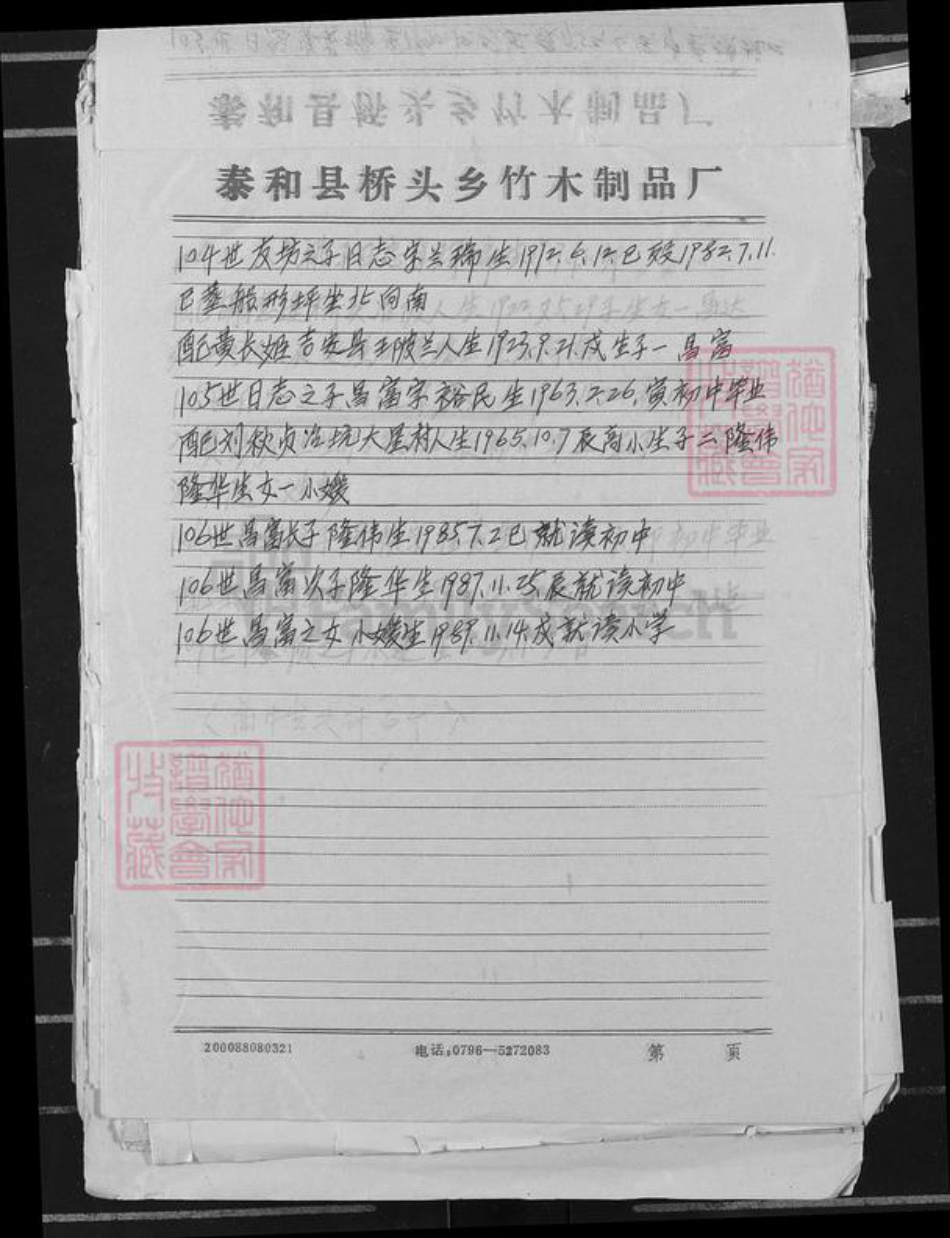 泰和县桥头乡竹木制品厂
104世友坊之子日志字兰瑞生1912.6.12.巳殁1982.7.11.
巳葬船形坪坐北向南
配黄长姬吉安县王陂兰人生1923.9.21.戌生子一昌富
105世日志之子昌富字裕民生1963.2.26.寅初中毕业
配刘秋贞冶坑大星村人生1965.10.7辰高小生子二隆伟
隆华生女一小媛
106世昌富长子隆伟生1985.7.2巳就读初中
106世昌富次子隆华生1987.11.25.辰就读初中
106世昌富之女小媛生1989.11.14.戌就读小学
200088080321 电话:0796—5272083 第 页